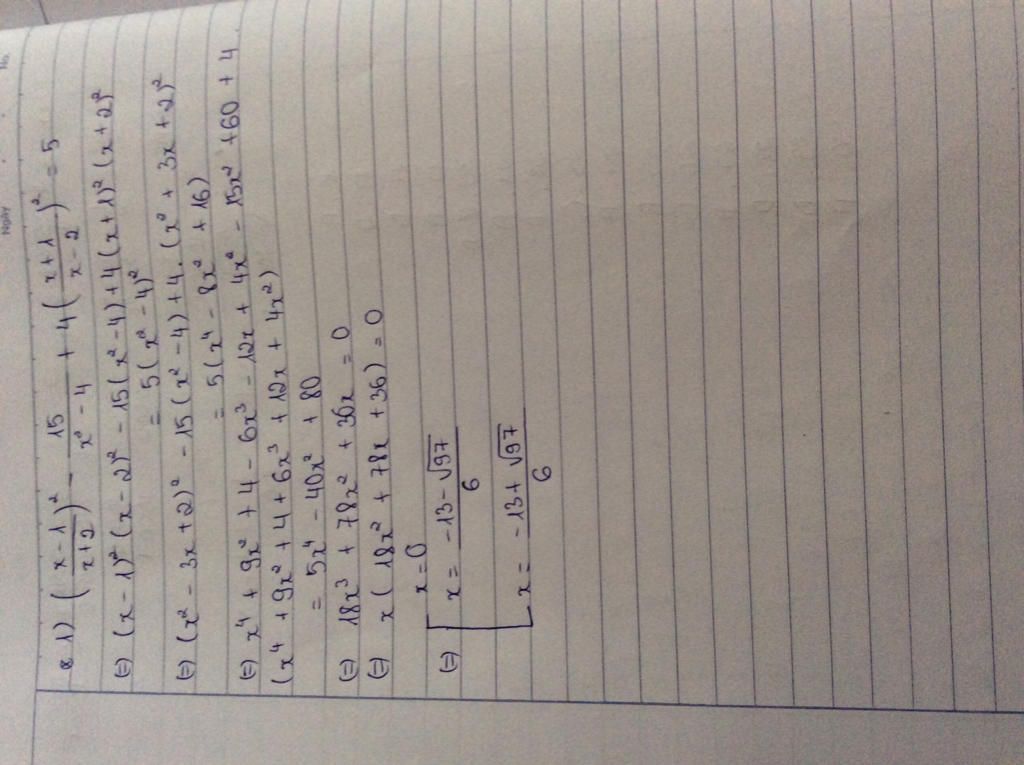 No.
Ngày
& 1) ((x-1)/(x+2))² - 15/(x²-4) + 4((x+1)/(x-2))² = 5
(=) (x-1)²(x-2)² - 15(x²-4) + 4(x+1)²(x+2)²
= 5(x²-4)²
(=) (x²-3x+2)² - 15(x²-4) + 4.(x²+3x+2)²
= 5(x⁴-8x²+16)
(=) x⁴ + 9x² + 4 - 6x³ - 12x + 4x² - 15x² + 60 + 4
(x⁴ + 9x² + 4 + 6x³ + 12x + 4x²)
= 5x⁴ - 40x² + 80
(=) 18x³ + 78x² + 36x = 0
(=) x(18x² + 78x + 36) = 0
x = 0
(=) [ x = (-13-√97)/6
x = (-13+√97)/6